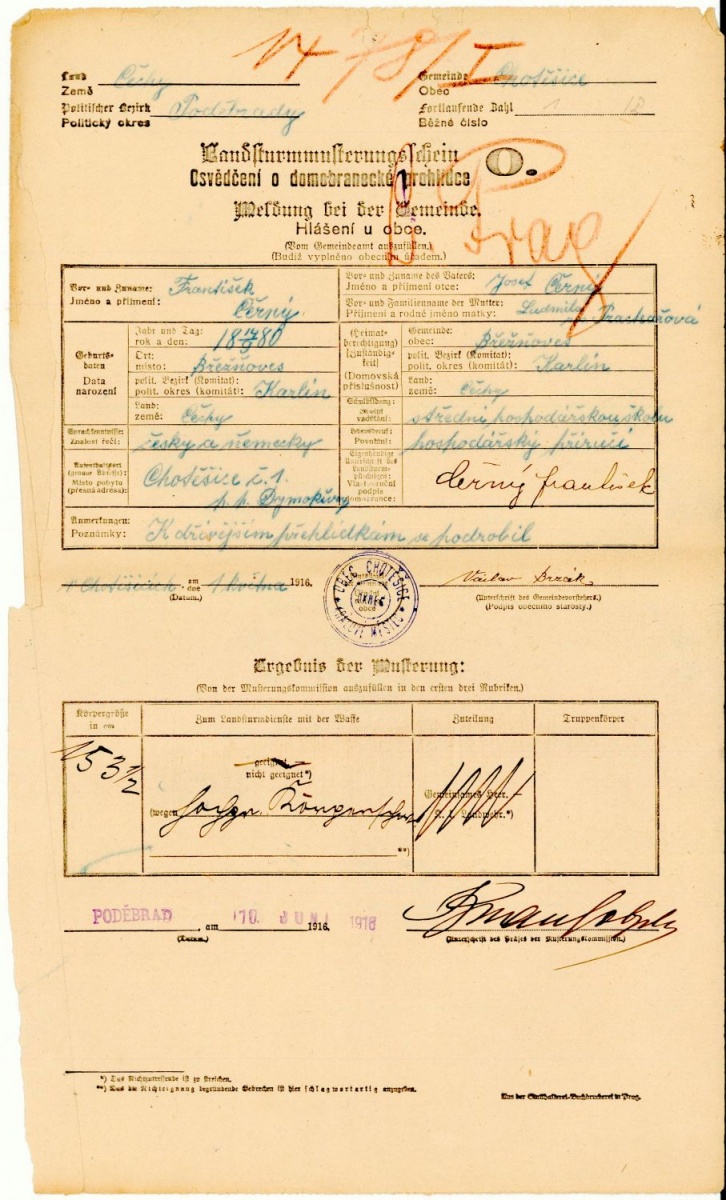 14 78/I
Land Čechy Gemeinde Chotěšice
Země Obec
Politischer Bezirk Poděbrady Fortlaufende Zahl 1
Politický okres Běžné číslo
Landsturmmusterungsschein
Osvědčení o domobranecké prohlídce
Meldung bei der Gemeinde.
Hlášení u obce.
Prag
(Vom Gemeindeamt auszufüllen.)
(Budiž vyplněno obecním úřadem.)
Vor- und Zuname: František
Jméno a příjmení: Černý
Vor- und Zuname des Vaters: Josef Černý
Jméno a příjmení otce:
Vor- und Familienname der Mutter: Ludmila
Příjmení a rodné jméno matky: Prachařová
Geburts-daten
Data narození
Jahr und Tag: 18 14/9 80
rok a den:
Ort: Břežňoves
místo:
polit. Bezirk (Komitat): Karlín
polit. okres (komitát):
Land: Čechy
země:
(Heimat-berechtigung) (Zuständig-keit)
(Domovská příslušnost)
Gemeinde: Břežňoves
obec:
polit. Bezirk (Komitat): Karlín
polit. okres (komitát):
Land: Čechy
země:
Sprachkenntnisse: česky a německy
Znalost řečí:
Schulbildung: střední hospodářskou školu
Školní vzdělání:
Lebensberuf: hospodářský příručí
Povolání:
Aufenthaltsort (genaue Adresse): Chotěšice č. 1.
Místo pobytu (přesná adresa): p. p. Dymokury
Eigenhändige Unterschrift des Landsturmpflichtigen: Černý František
Vlastnoruční podpis domobrance:
Anmerkungen: K dřívějším přehlídkám se podrobil
Poznámky:
v Chotěšicích am dne 1 května 1916.
(Datum.)
OBEC CHOTĚSICE
Václav Brzák
(Unterschrift des Gemeindevorstehers.)
(Podpis obecního starosty.)
Ergebnis der Musterung:
(Von der Musterungskommission auszufüllen in den ersten drei Rubriken.)
Körpergröße in cm
Zum Landsturmdienste mit der Waffe
Zuteilung
Truppenkörper
153 1/2
geeignet
nicht geeignet*)
(wegen hochgr. Körperschw.
**)
Gemeinsames Heer. -
K. k. Landwehr.*)
PODĚBRAD, am 10. JUNI 1916 1916.
(Datum.)
(Unterschrift des Präses der Musterungskommission.)
*) Das Nichtzutreffende ist zu streichen.
**) Das die Nichteignung begründende Gebrechen ist hier schlagwortartig anzugeben.
Aus der Statthalterei-Buchdruckerei in Prag.